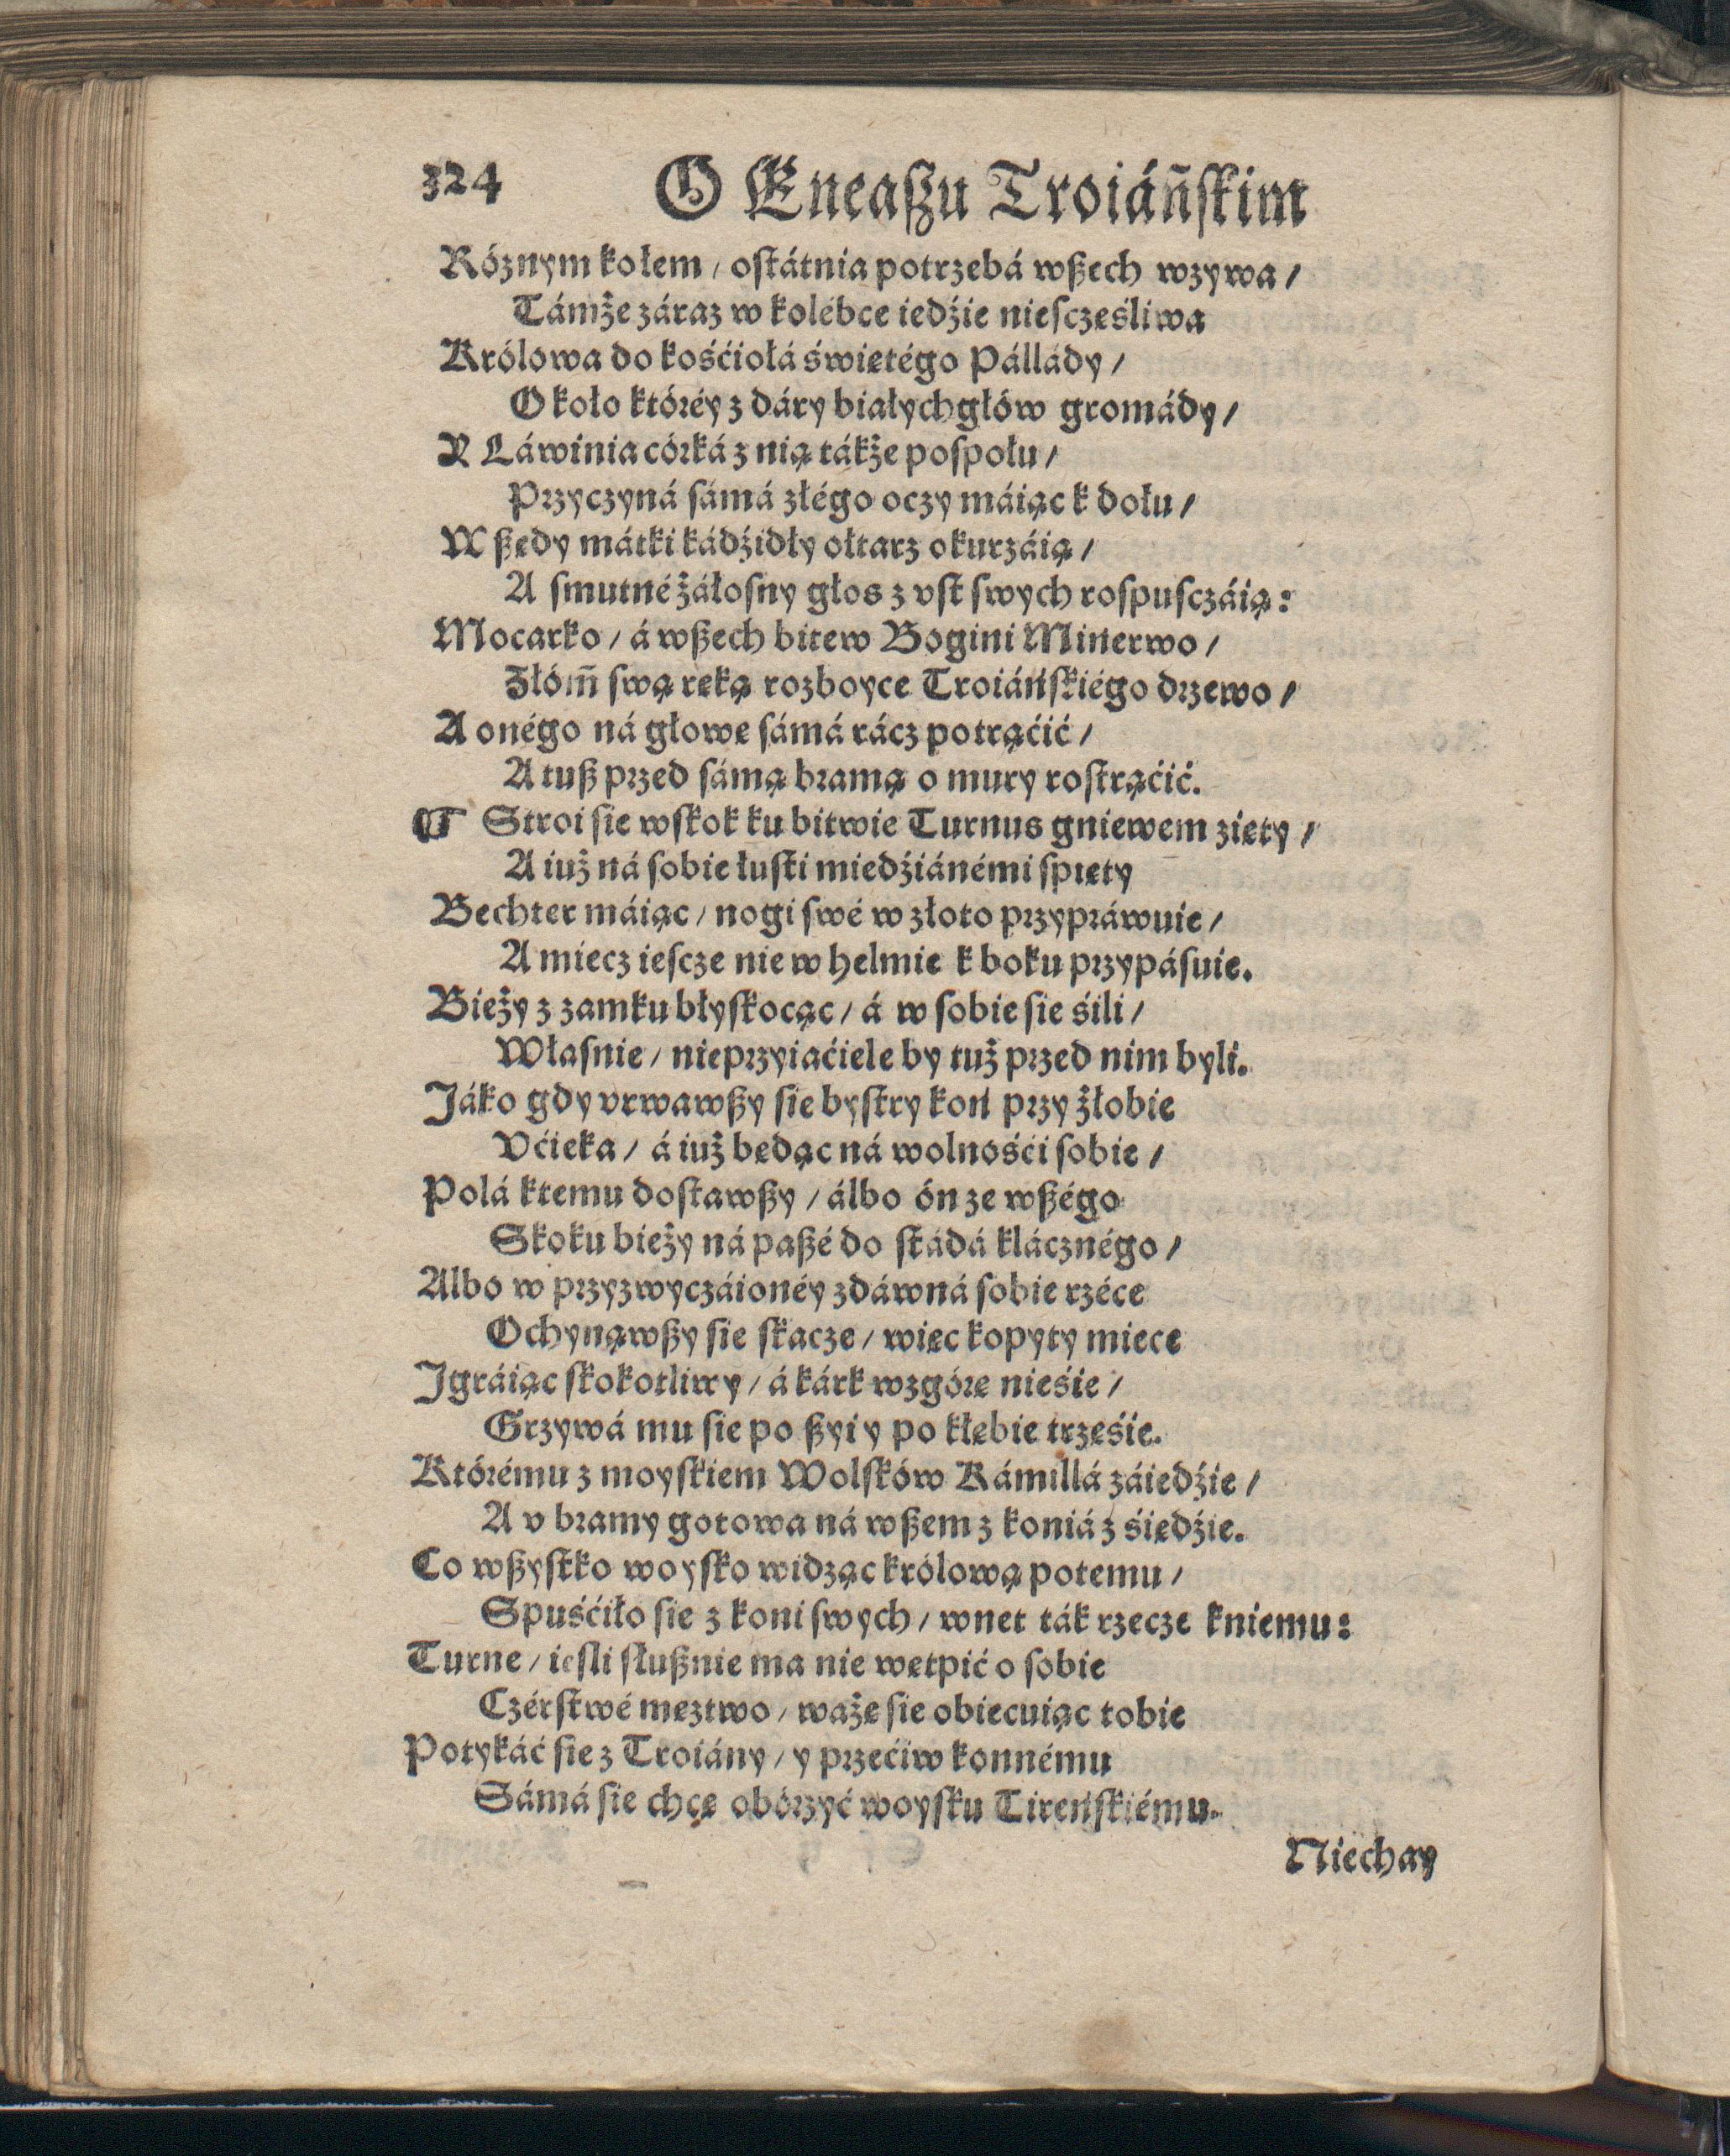 324 O Eneaßu Troiáńſkim
Róznym kołem / oſtátnia potrzebá wßech wzywa /
Támże záraz w kolébce iedźie nieſczęśliwa
Królowa do kośćiołá świętégo Pállády /
Około któréy z dáry białychgłów gromády /
Y Láwinia córká z nią tákże poſpołu /
Przyczyná ſámá złégo oczy máiąc k dołu /
Wßędy mátki kádźidły ołtarz okurzáią /
A ſmutné żáłoſny głos z vſt ſwych roſpuſczáią:
Mocarko / á wßech bitew Bogini Minerwo /
Złóm̃ ſwą ręką rozboyce Troiáńſkiégo drzewo /
A onégo ná głowę ſámá rácz potrąćić /
A tuß przed ſámą bramą o mury roſtrąćić.
¶ Stroi ſie wſkok ku bitwie Turnus gniewem zięty /
A iuż ná ſobie łuſki miedźiánémi ſpięty
Bechter máiąc / nogi ſwé w złoto przypráwuie /
A miecz ieſcze nie w helmie k boku przypáſuie.
Bieży z zamku błyſkocąc / á w ſobie ſie śili /
Właſnie / nieprzyiaćiele by tuż przed nim byli.
Jáko gdy vrwawßy ſie byſtry koń przy żłobie
Vćieka / á iuż będąc ná wolnośći ſobie /
Polá ktemu doſtawßy / álbo ón ze wßégo
Skoku bieży ná paßé do ſtádá klácznégo /
Albo w przyzwyczáionéy zdáwná ſobie rzéce
Ochynąwßy ſie ſkacze / więc kopyty miece
Jgráiąc ſkokotliwy / á kárk wzgórę nieśie /
Grzywá mu ſie po ßyi y po kłębie trzęśie.
Którému z moyſkiem Wolſków Kámillá záiedźie /
A v bramy gotowa ná wßem z koniá z śiędźie.
Co wßyſtko woyſko widząc królową potemu /
Spuśćiło ſie z koni ſwych / wnet ták rzecze kniemu:
Turne / ieſli ſłußnie ma nie wętpić o ſobie
Czérſtwé męztwo / ważę ſie obiecuiąc tobie
Potykáć ſie z Troiány / y przećiw konnému
Sámá ſie chcę obórzyć woyſku Tireńſkiému.
Niechay